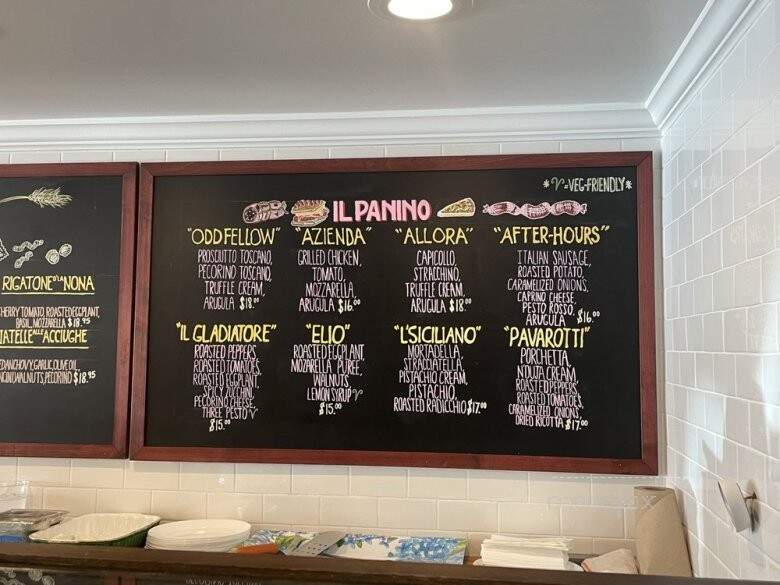 RIGATONE DLA NONA
CHERRY TOMATO, ROASTED EGGPLANT,
BASIL, MOZZARELLA $18.95
ALLE ACCIUGHE
ANCHOVY, GARLIC, OLIVE OIL,
WALNUTS, PECORINO $18.95
*V=VEG-FRIENDLY*
IL PANINO
"ODDFELLOW"
PROSCIUTTO TOSCANO,
PECORINO TOSCANO,
TRUFFLE CREAM,
ARUGULA $18.00
"AZIENDA"
GRILLED CHICKEN,
TOMATO,
MOZZARELLA,
ARUGULA $16.00
"ALLORA"
CAPICOLLO,
STRACCHINO,
TRUFFLE CREAM,
ARUGULA $18.00
"AFTER-HOURS"
ITALIAN SAUSAGE,
ROASTED POTATO,
CARAMELIZED ONIONS,
CAPRINO CHEESE,
PESTO ROSSO,
ARUGULA $16.00
"IL GLADIATORE"
ROASTED PEPPERS,
ROASTED TOMATOES,
ROASTED EGGPLANT,
ZUCCHINI,
PECORINO CHEESE,
THREE PESTO V
$15.00
"ELIO"
ROASTED EGGPLANT,
MOZARELLA PUREE,
WALNUTS,
LEMON SYRUP V
$15.00
"L'SICILIANO"
MORTADELLA,
STRACCIATELLA,
PISTACHIO CREAM,
PISTACHIO,
ROASTED RADICCHIO $17.00
"PAVAROTTI"
PORCHETTA,
NDUJA CREAM,
ROASTED PEPPERS,
ROASTED TOMATOES,
CARAMELIZED ONIONS,
DRIED RICOTTA $17.00